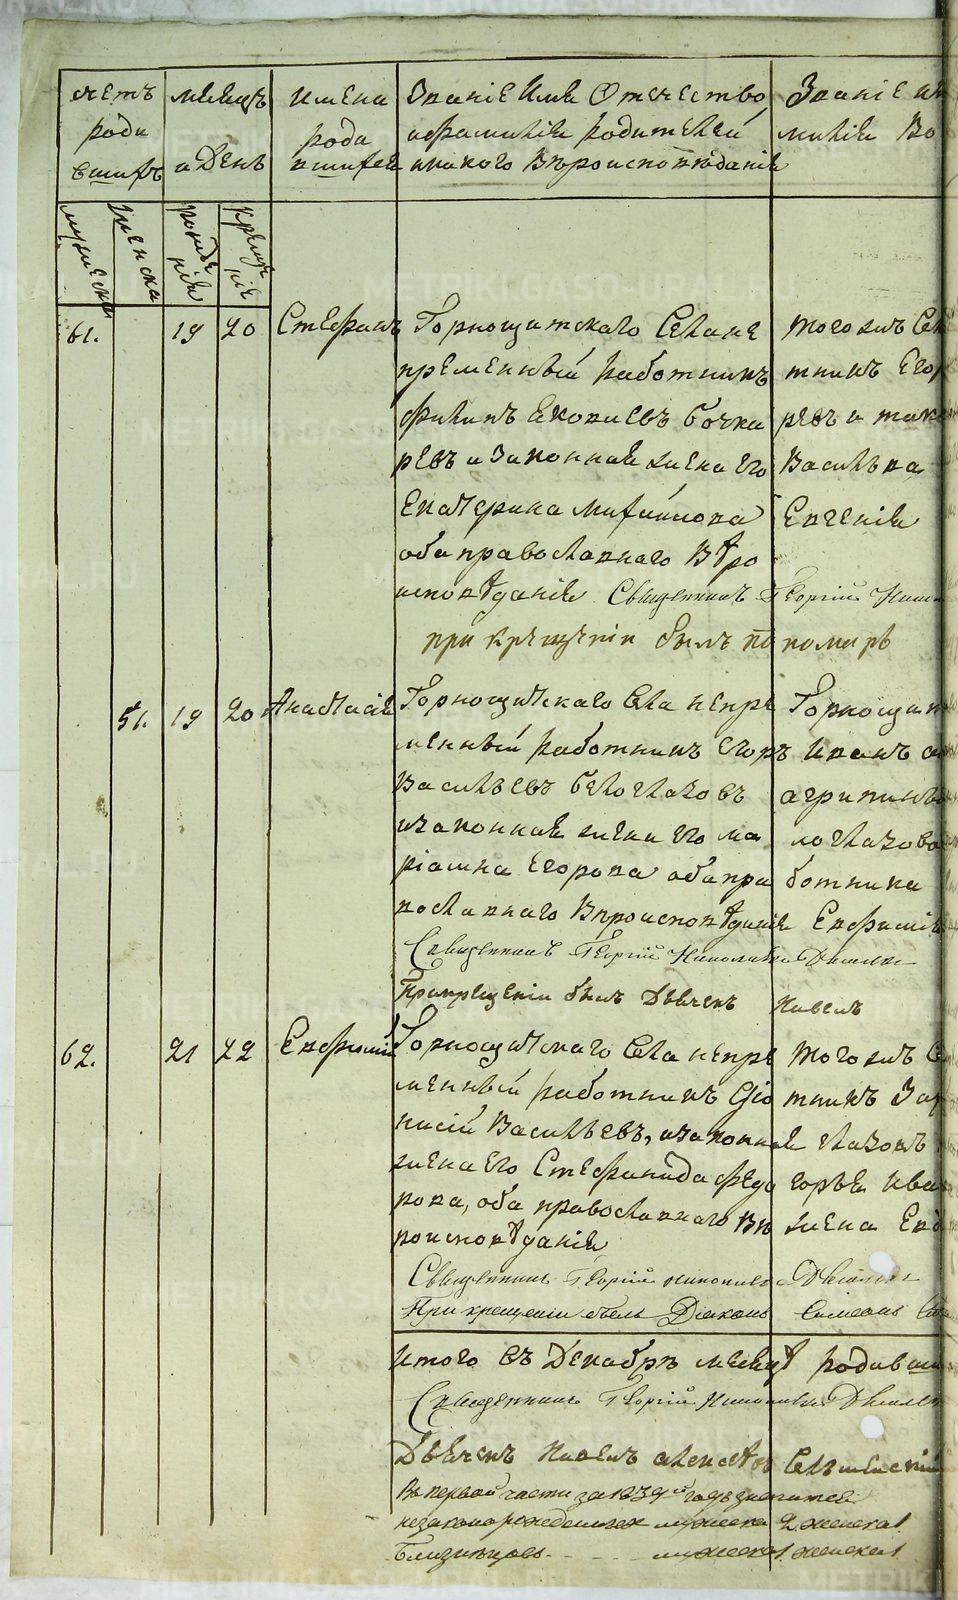 счетъ роди вшихъ
месецъ и день
имена роди вшихся
Званiе Имя Отечество
и фамилiя родителей
и какого Вѣроисповѣданiя
Званiе и
милiя Во
мужеска
женска
рожде нiя
креще нiя
61. 19 20 Стефанъ Горнощитскаго Села не
пременный работникъ
Филипъ Яковлевъ Бочка
ревъ и Законная жена его
Екатерина Михайлова
оба православнаго Вѣро
исповѣданiя Священникъ Георгiй
при крещенiи былъ по номарь
тогожъ Се
тникъ Его
ревъ и
Васильва
Евгенiя
51. 19 20 Анастасiя Горнощитскаго Села непре
менный работникъ Егоръ
Васильевъ Белоглазовъ
и законная жена его Ма
рiамна Егорова оба пра
вославнаго Вѣроисповѣданiя
Священникъ Георгiй
При крещенiи былъ Дьячекъ Павелъ
Горнощит
Иванъ
агрипина
логлазова
ботника
Евфимiя
62. 21 22 Евфимiй Горнощитскаго Села непре
менный работникъ Дiо
нисiй Васильевъ, и законная
жена его Стефанида Федо
рова, оба православнаго Вѣ
роисповѣданiя
Священникъ Георгiй
При крещенiи былъ Дiаконъ Симеонъ
тогожъ С
тникъ За
глазовъ
горья Ива
жена Евд
Итого въ Декабрѣ месяцѣ родивши
Священникъ Георгiй
Дьячекъ Павелъ
Въ первой части за 1839й годъ значится
незаконорожденныхъ мужеска 2 женска 1
Близнецовъ - - - - мужеска 1 женска 1
METRIKI.GASO-URAL.RU